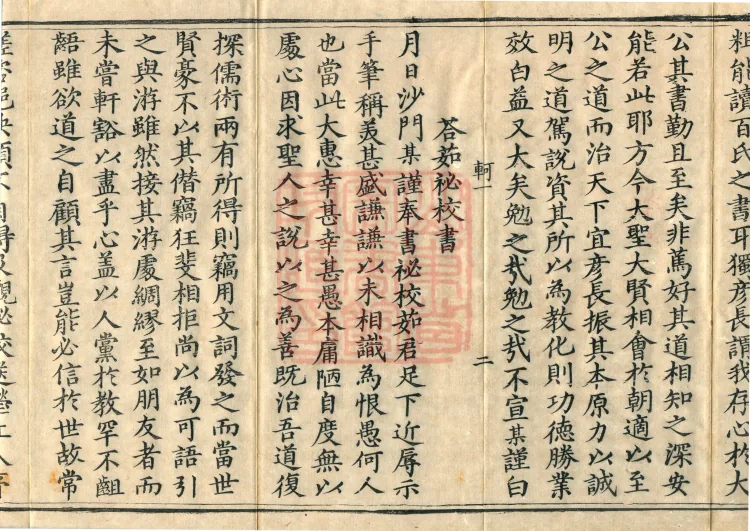 粗能讀百氏之書耳獨彥長謂我存心於大
公其書勤且至矣非篤好其道相知之深安
能若此耶方今大聖大賢相會於朝適以至
公之道而治天下宜彥長振其本原力以誠
明之道駕說資其所以為教化則功德勝業
效白益又大矣勉之㢤勉之㢤不宣某謹白
軻一
二
荅茹祕校書
月日沙門某謹奉書祕校茹君足下近辱示
手筆稱羙甚盛謙謙以未相識為恨愚何人
也當此大惠幸甚幸甚愚本庸陋自度無以
處心因求聖人之說以之為善既治吾道復
探儒術兩有所得則竊用文詞發之而當世
賢豪不以其僣竊狂斐相拒尚以為可語引
之與游雖然接其游處綢繆至如朋友者而
未嘗軒豁以盡乎心盖以人黨於教罕不齟
齬雖欲道之自顧其言豈能必信於世故常